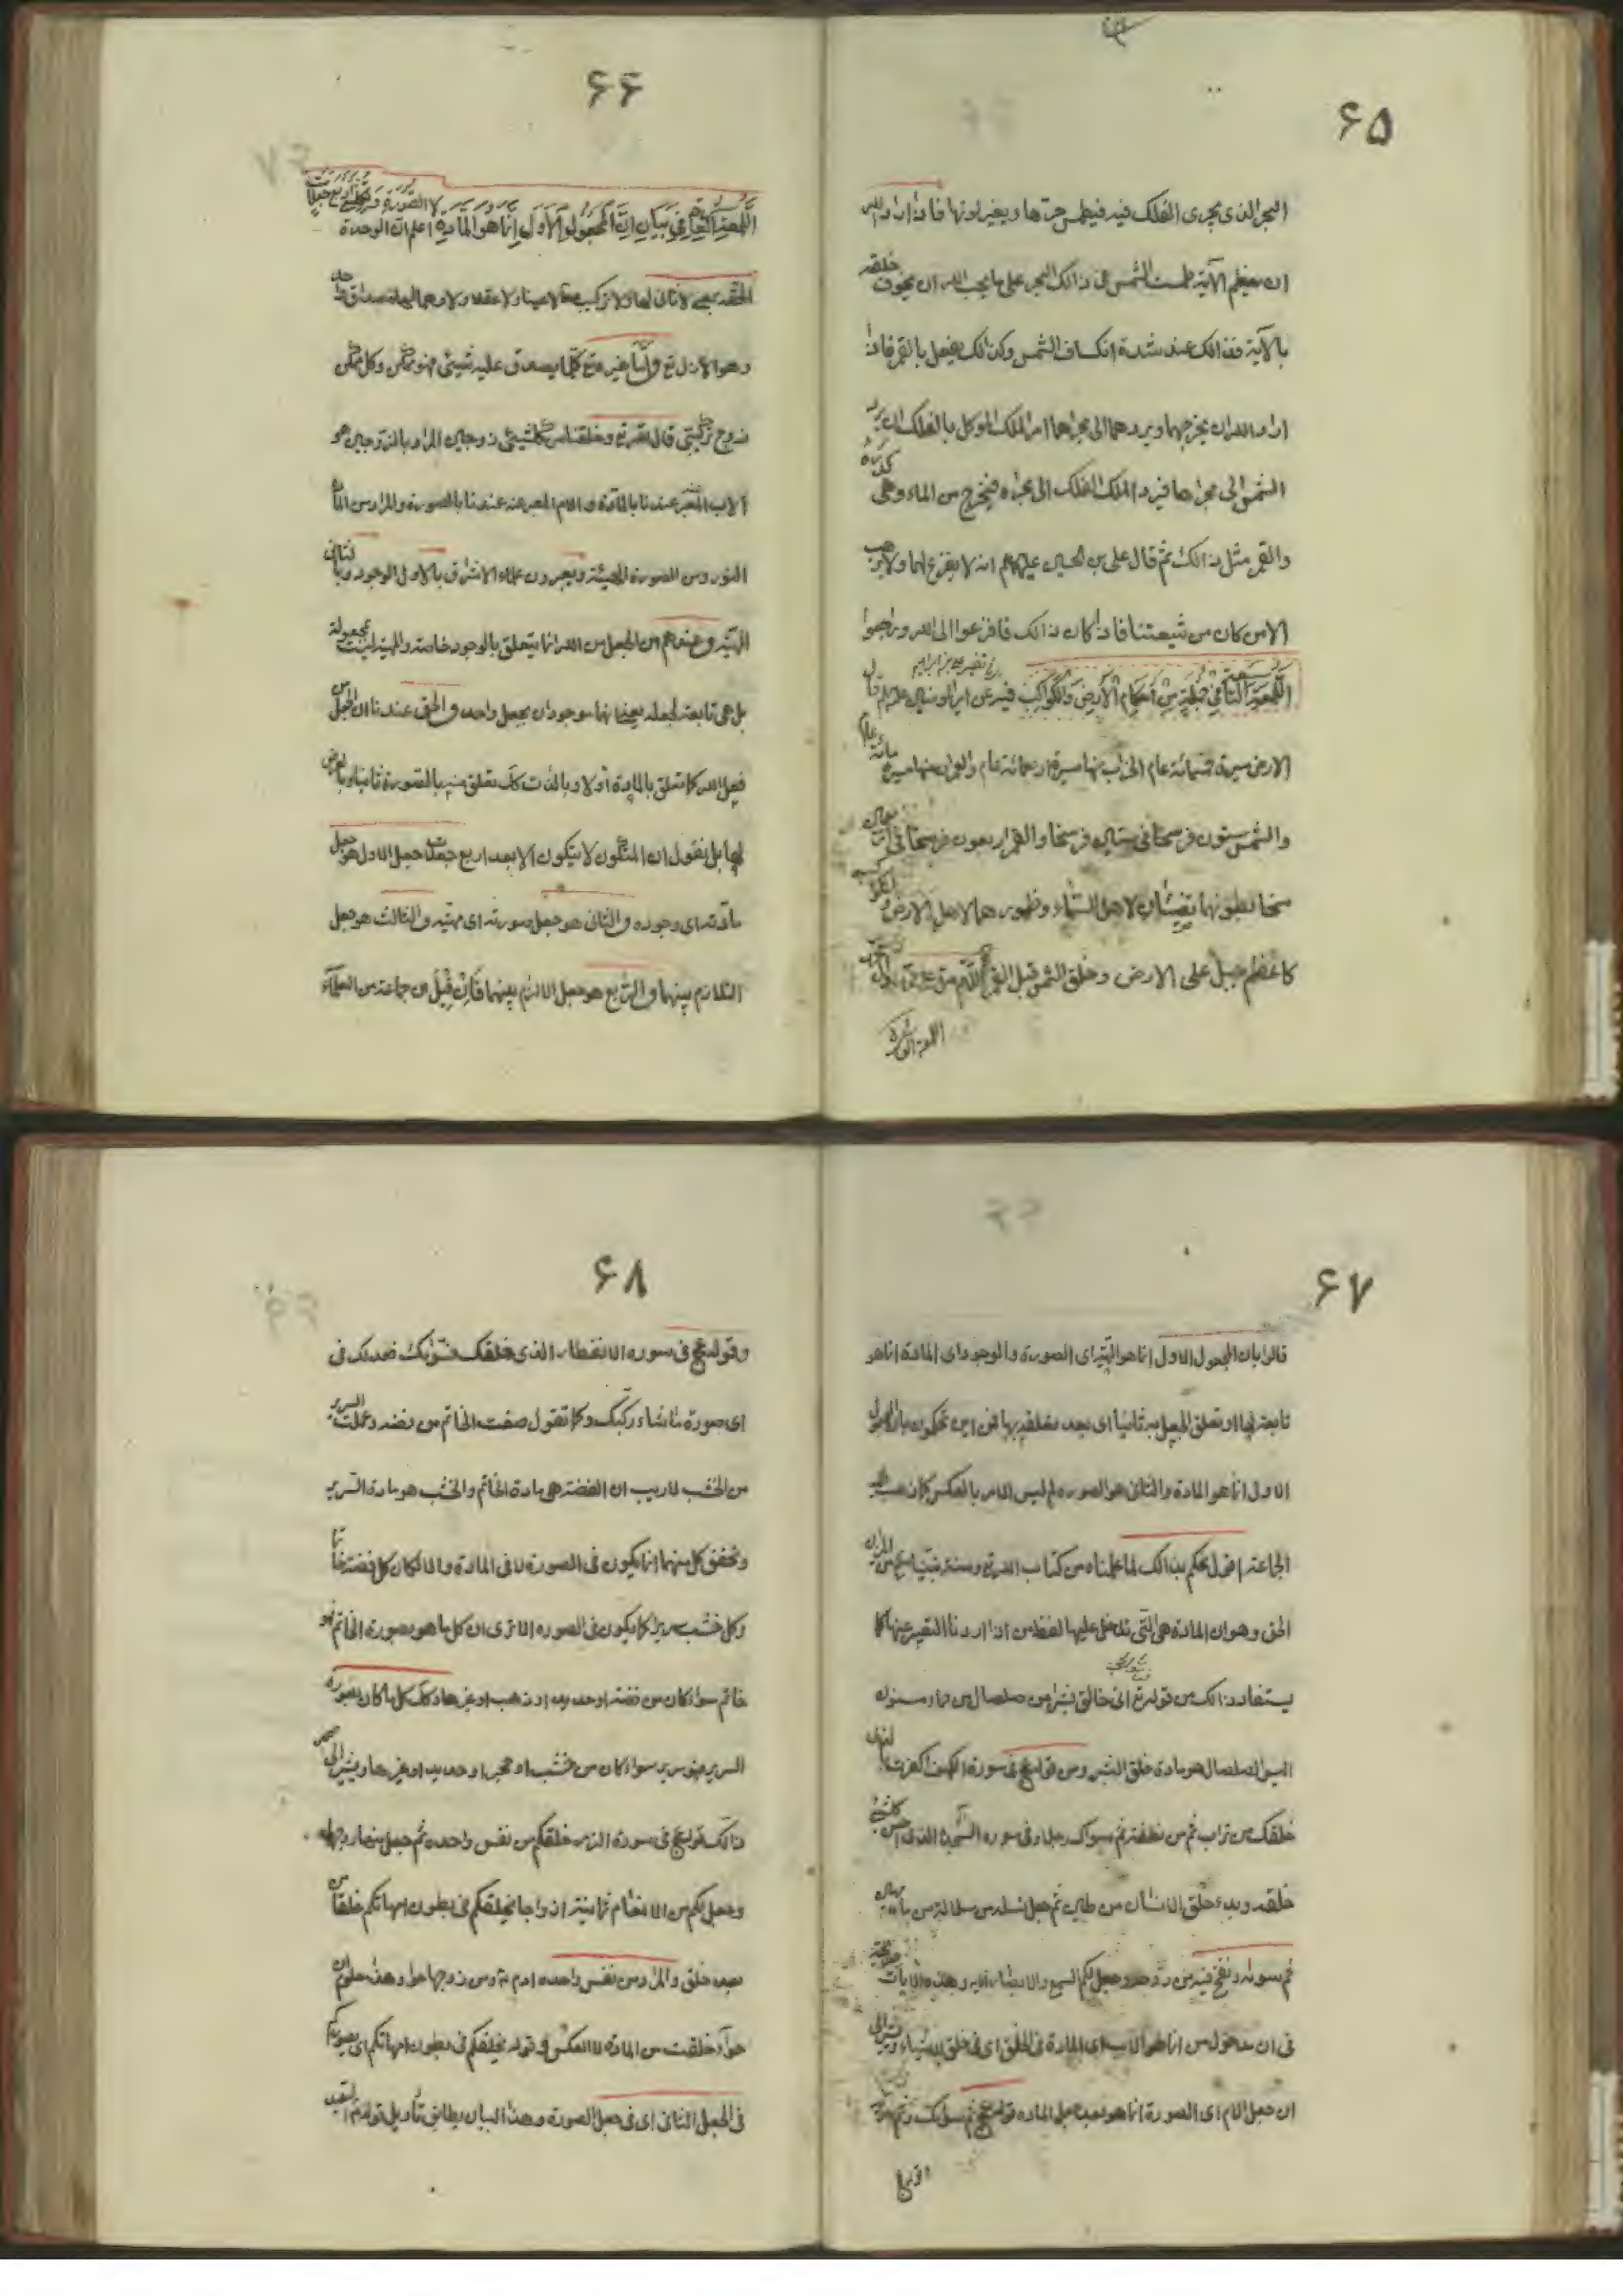 ٦٥
البحر الذی یجری الفلک فیه فیطمس حرها ویغیر لونها فاذا اراد الله
ان یعظم الآیة طمست الشمس فی ذالک البحر علی ما یحب الله ان یخوف خلقه
بالآیة فذالک عند شدة انکساف الشمس وکذالک یفعل بالقمر فاذا
اراد الله ان یخرجهما ویردهما الی مجراهما امر الملک الموکل بالفلک ان یرد
الشمس الی مجراها فیرد الملک الفلک الی مجراه فیخرج من الماء وهی کدرة
والقمر مثل ذالک ثم قال علی بن الحسین علیهما انه لا یفزع لهما ولا یرهب
الا من کان من شیعتنا فاذا کان ذالک فافزعوا الی الله وراجعوا
اللمعة التاسعة فی جملة من احکام الارض والکواکب فیه عن امیر المؤمنین علیه قال
الارض مسیرة خمسمائة عام الخراب منها مسیرة اربعمائة عام والعمران منها مسیرة مائة عام
والشمس ستون فرسخا فی ستین فرسخا والقمر اربعون فرسخا فی اربعین
سخا بطونهما یضیئان لاهل السماء وظهورهما لاهل الارض والکواکب
کاعظم جبل علی الارض وخلق الشمس قبل القمر
اللمعة العاشرة
٦٦
اللمعة العاشرة فی بیان ان المجعول الاول انما هو المادة لا الصورة اعلم ان الوحدة
الحقة بمعنی لا ثانی لها ولا ترکیب لا عینا ولا عقلا ولا وهما لها مصداق واحد
وهو الازل تع واما غیره تع کلما یصدق علیه شیئ فهو ممکن وکل ممکن
زوج ترکیبی قال الله تع وخلقنا من کلشیئ زوجین المراد بالزوجین هو
الاب المعبر عندنا بالمادة والام المعبر عنه عندنا بالصورة والمراد من المادة
النور ومن الصورة الهیئة ویعبرون علماء الاشراق بالاول الوجود وبالثانی
المهیة وعندهم ان الجعل من الله انما یتعلق بالوجود خاصة والمهیة لیست مجعولة
بل هی تابعة لجعله بمعنی انها موجودان بجعل واحد والحق عندنا ان الجعل من
فعل الله کما تعلق بالمادة اولا وبالذات کک تعلق منه بالصورة ثانیا وبالعرض
لها بل نقول ان المتکون لا یتکون الا بعد اربع جعلات جعل الاول هو جعل
مادته ای وجوده والثانی هو جعل صورته ای مهیته والثالث هو جعل
التلازم بینهما والرابع هو جعل الالزام بینهما فان قیل ان جماعة من العلماء
٦٧
قالوا بان المجعول الاول انما هو المهیة ای الصورة والوجود ای المادة انما هو
تابعة لها او تعلق الجعل به ثانیا ای بعد تعلقه بها فمن این تحکمون بان المجعول
الاول انما هو المادة والثانی هو الصورة لم لیس الامر بالعکس کما ذهب الیه
الجماعة اقول نحکم بذالک لما علمناه من کتاب الله تع وسنة نبینا
الحق وهو ان المادة هی التی تدخل علیها لفظ من اذا اردنا التعبیر عنها کما
یستفاد ذالک من قوله تع انی خالق بشرا من صلصال من حماء مسنون
الیس الصلصال هو مادة خلق البشر ومن قوله تع فی سورة الکهف اکفرت بالذی
خلقک من تراب ثم من نطفة ثم سواک رجلا وفی سورة السجدة الذی احسن کلشیئ
خلقه وبدء خلق الانسان من طین ثم جعل نسله من سلالة من ماء مهین
ثم سواه ونفخ فیه من روحه وجعل لکم السمع والابصار الایة وهذه الایات صریحة
فی ان مدخول من انما هو الاب ای المادة فی الخلق ای فی خلق الاشیاء ویشیر الی
ان جعل الام ای الصورة انما هو بعد جعل المادة قوله تع ثم سواک
٦٨
وقوله تع فی سورة الانفطار الذی خلقک فسواک فعدلک فی
ای صورة ما شاء رکبک وکما تقول صغت الخاتم من فضة وعملت السریر
من الخشب لا ریب ان الفضة هی مادة الخاتم والخشب هو مادة السریر
وتحقق کل منهما انما یکون فی الصورة لا فی المادة والا لکان کل فضة خاتما
وکل خشب سریرا کما یکون فی الصورة الا تری ان کل ما هو بصورة الخاتم فهو
خاتم سواء کان من فضة او حدید او ذهب او غیرها وکک کل ما کان بصورة
السریر فهو سریر سواء کان من خشب او حجر او حدید او غیرها ویشیر الی
ذالک قوله تع فی سورة الزمر خلقکم من نفس واحدة ثم جعل منها زوجها
وجعل لکم من الانعام ثمانیة ازواجا یخلقکم فی بطون امهاتکم خلقا من
بعد خلق والمراد من نفس واحدة ادم ع ومن زوجها حوا وهذا معلوم ان
حواء خلقت من المادة لا العکس وقوله یخلقکم فی بطون امهاتکم ای یصورکم
فی الجعل الثانی ای فی جعل الصورة وهذا البیان یطابق تأویل قوله